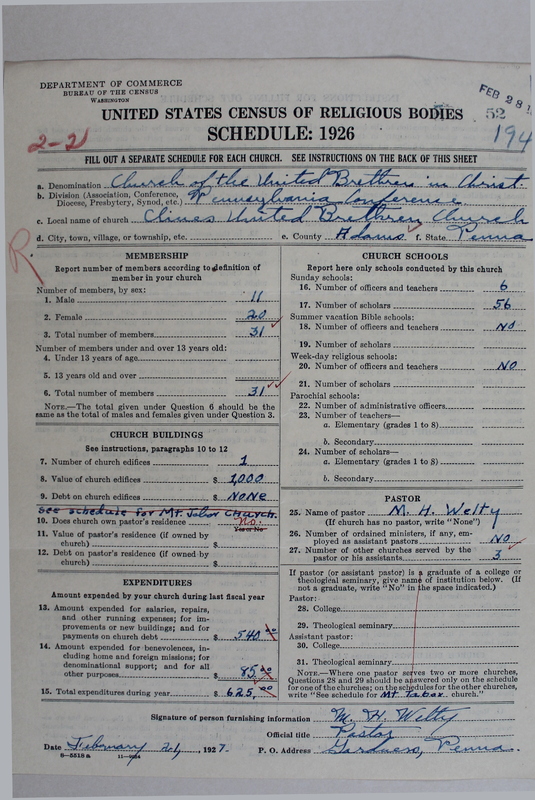 DEPARTMENT OF COMMERCE
BUREAU OF THE CENSUS
WASHINGTON
FEB 28
52
194
UNITED STATES CENSUS OF RELIGIOUS BODIES
SCHEDULE: 1926
2-21
FILL OUT A SEPARATE SCHEDULE FOR EACH CHURCH. SEE INSTRUCTIONS ON THE BACK OF THIS SHEET
a. Denomination Church of the United Brethren in Christ.
b. Division (Association, Conference, Diocese, Presbytery, Synod, etc.) Pennsylvania Conference
c. Local name of church Clines United Brethren Church
d. City, town, village, or township, etc. e. County Adams f. State Penna
R
MEMBERSHIP
Report number of members according to definition of
member in your church
Number of members, by sex:
1. Male 11
2. Female 20
3. Total number of members 31
Number of members under and over 13 years old:
4. Under 13 years of age
5. 13 years old and over
6. Total number of members 31
NOTE.—The total given under Question 6 should be
same as the total of males and females given under Question 3.
CHURCH BUILDINGS
See instructions, paragraphs 10 to 12
7. Number of church edifices 1
8. Value of church edifices $ 1,000
9. Debt on church edifices $ None
See schedule for Mt. Tabor Church.
10. Does church own pastor's residence No.
Yes or No
11. Value of pastor's residence (if owned by
church) $
12. Debt on pastor's residence (if owned by
church) $
EXPENDITURES
Amount expended by your church during last fiscal year
13. Amount expended for salaries, repairs,
and other running expenses; for im-
provements or new buildings; and for
payments on church debt $ 540.00
14. Amount expended for benevolences, in-
cluding home and foreign missions; for
denominational support; and for all
other purposes $ 85.00
15. Total expenditures during year $ 625.00
CHURCH SCHOOLS
Report here only schools conducted by this church
Sunday schools:
16. Number of officers and teachers 6
17. Number of scholars 56
Summer vacation Bible schools:
18. Number of officers and teachers No
19. Number of scholars
Week-day religious schools:
20. Number of officers and teachers No
21. Number of scholars
Parochial schools:
22. Number of administrative officers
23. Number of teachers—
a. Elementary (grades 1 to 8)
b. Secondary
24. Number of scholars—
a. Elementary (grades 1 to 8)
b. Secondary
PASTOR
25. Name of pastor M. H. Welty
(If church has no pastor, write "None")
26. Number of ordained ministers, if any, em-
ployed as assistant pastors No
27. Number of other churches served by the
pastor or his assistants 3
If pastor (or assistant pastor) is a graduate of a college or
theological seminary, give name of institution below. (If
not a graduate, write "No" in the space indicated.)
Pastor:
28. College
29. Theological seminary
Assistant pastor:
30. College
31. Theological seminary
NOTE.—Where one pastor serves two or more churches,
Questions 28 and 29 should be answered only on the schedule
for one of the churches; on the schedules for the other churches,
write "See schedule for Mt Tabor church."
Signature of person furnishing information M. H. Welty
Official title Pastor
Date February 24, 1927. P. O. Address Gardners, Penna.
8-5518a 11-9024